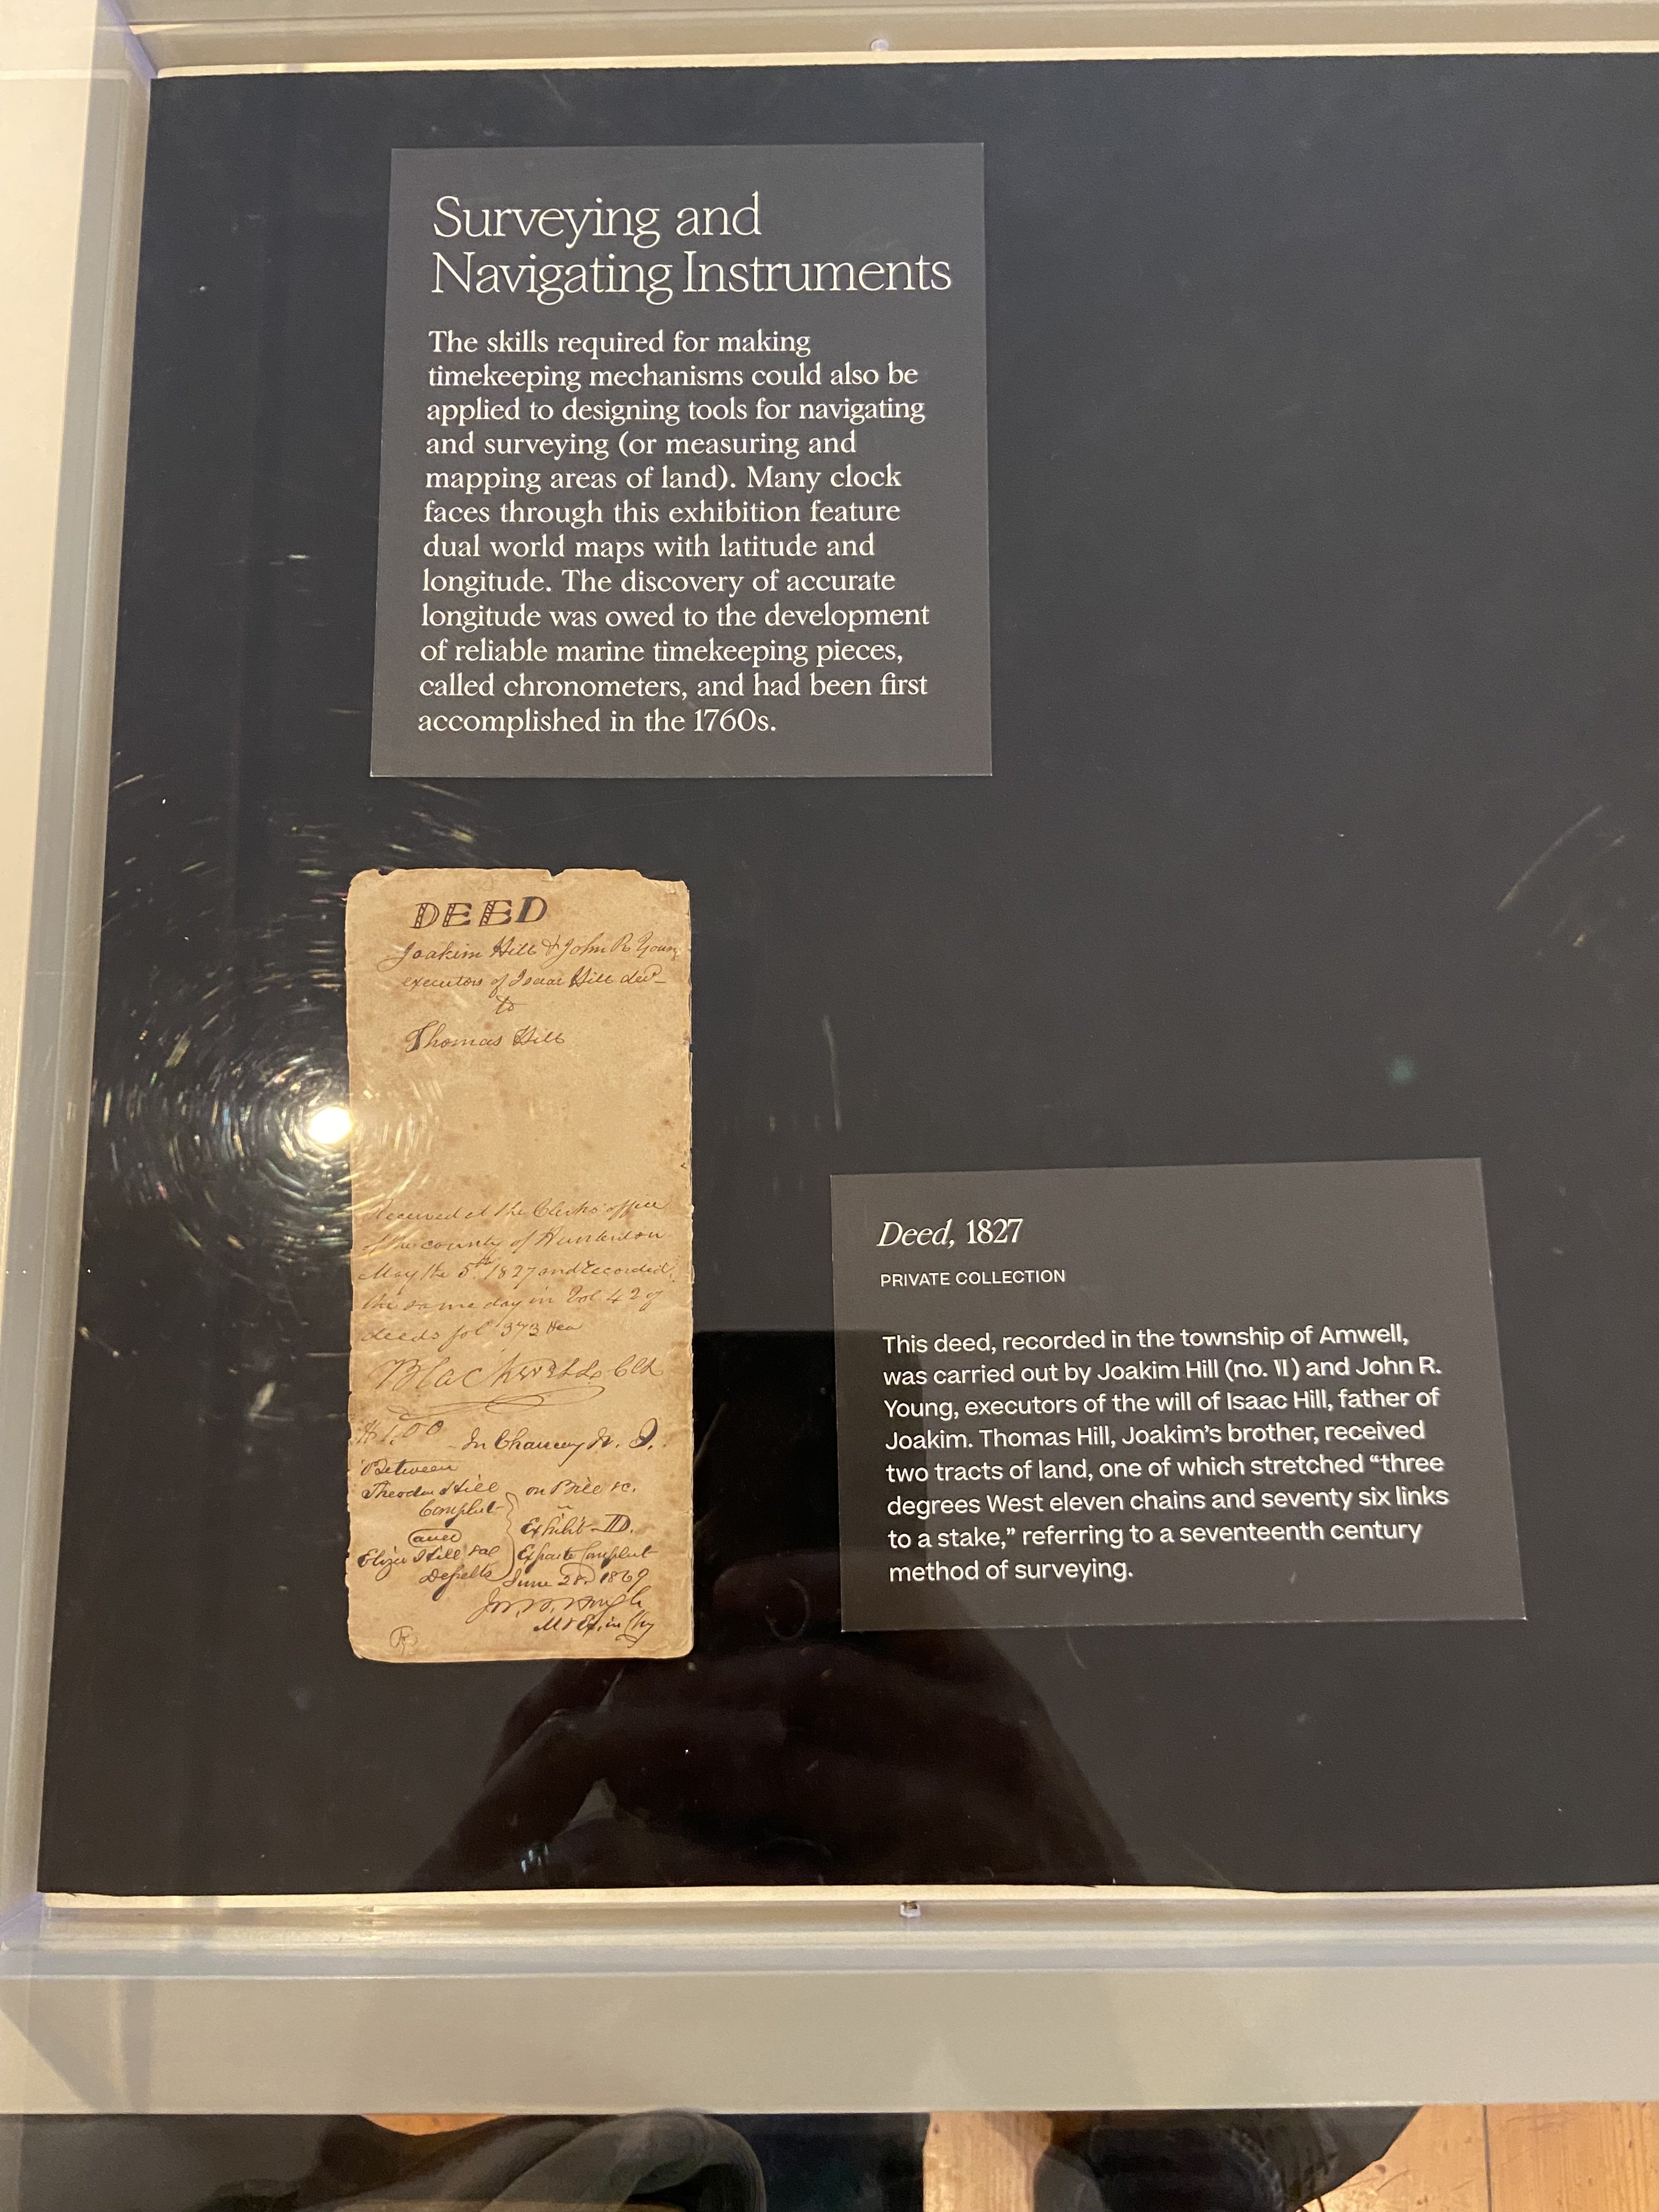 Surveying and
Navigating Instruments
The skills required for making
timekeeping mechanisms could also be
applied to designing tools for navigating
and surveying (or measuring and
mapping areas of land). Many clock
faces through this exhibition feature
dual world maps with latitude and
longitude. The discovery of accurate
longitude was owed to the development
of reliable marine timekeeping pieces,
called chronometers, and had been first
accomplished in the 1760s.
DEED
Joakim Hill & John R Young
executors of Isaac Hill decd
to
Thomas Hill
Received at the Clerks office
of the county of Hunterdon
May the 5th 1827 and recorded
the same day in Vol 42 of
deeds fol 373
$1.00
In Chancey N. J.
Between
Theodore Hill
on Bill &c.
Complnt
and
Exhibit D.
Eliza Hill
Exparte Complnt
Defelts
June 28. 1869
Deed, 1827
PRIVATE COLLECTION
This deed, recorded in the township of Amwell,
was carried out by Joakim Hill (no. VI) and John R.
Young, executors of the will of Isaac Hill, father of
Joakim. Thomas Hill, Joakim's brother, received
two tracts of land, one of which stretched “three
degrees West eleven chains and seventy six links
to a stake,” referring to a seventeenth century
method of surveying.